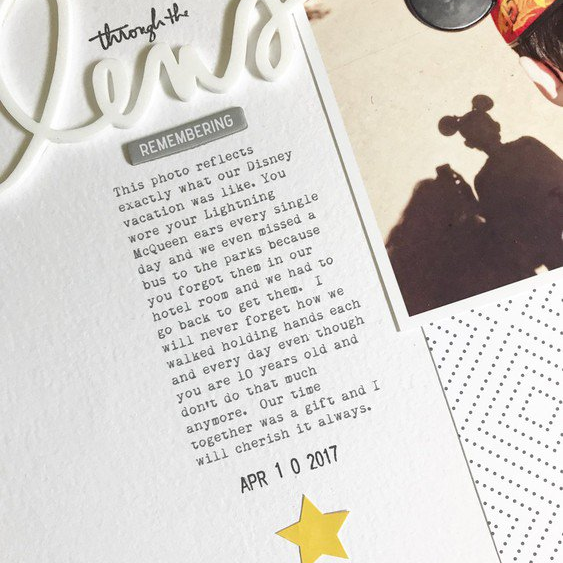 through the
lens
REMEMBERING
This photo reflects
exactly what our Disney
vacation was like. You
wore your Lightning
McQueen ears every single
day and we even missed a
bus to the parks because
you forgot them in our
hotel room and we had to
go back to get them. I
will never forget how we
walked holding hands each
and every day even though
you are 10 years old and
don't do that much
anymore. Our time
together was a gift and I
will cherish it always.
APR 10 2017